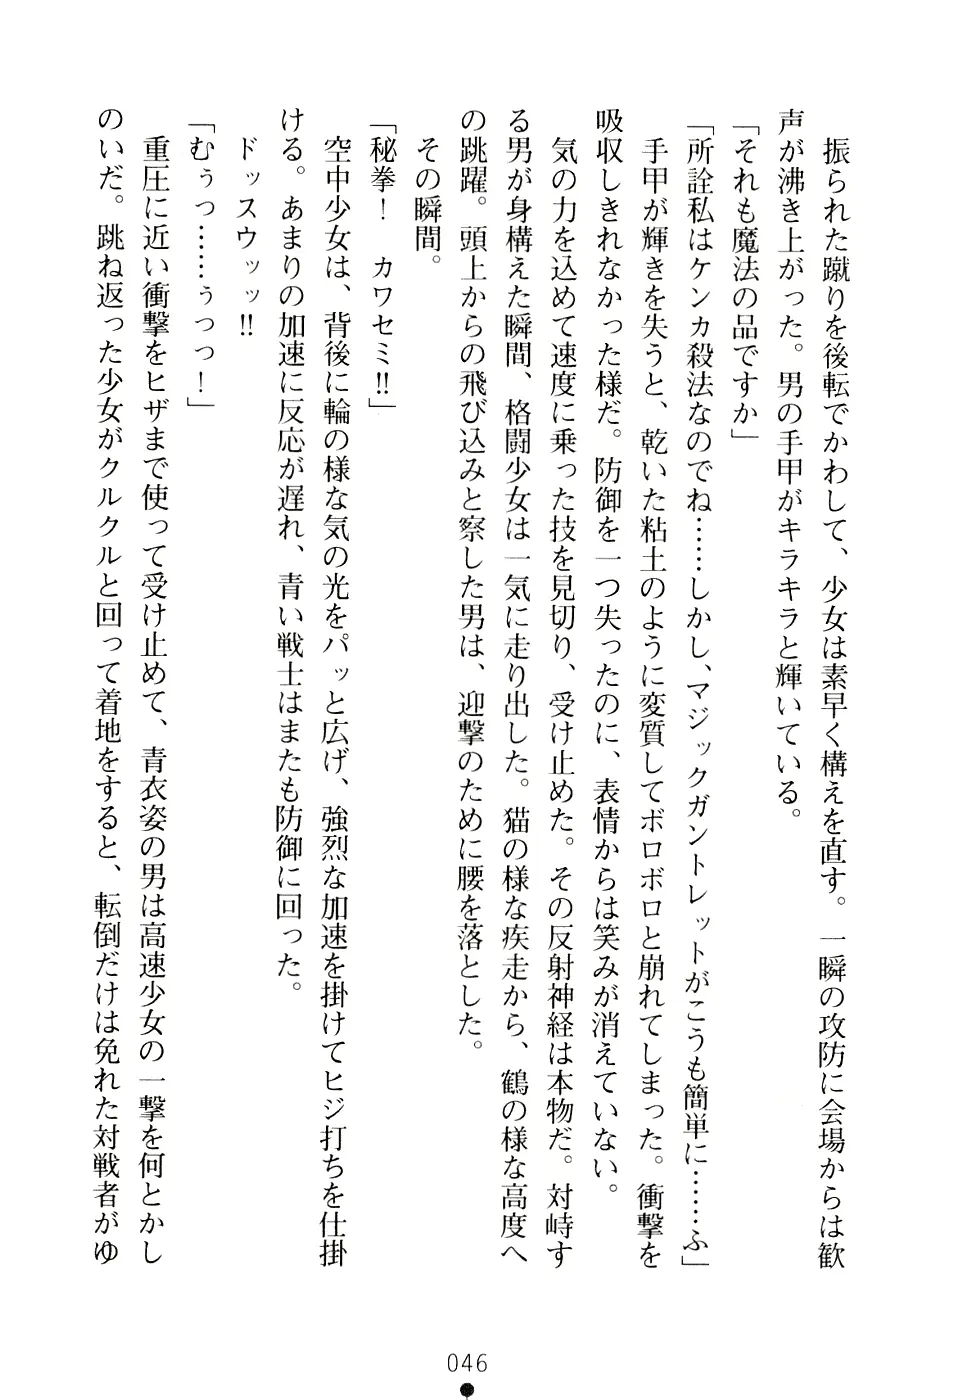 振られた蹴りを後転でかわして、少女は素早く構えを直す。一瞬の攻防に会場からは歓
声が沸き上がった。男の手甲がキラキラと輝いている。
「それも魔法の品ですか」
「所詮私はケンカ殺法なのでね……しかし、マジックガントレットがこうも簡単に……ふ」
　手甲が輝きを失うと、乾いた粘土のように変質してボロボロと崩れてしまった。衝撃を
吸収しきれなかった様だ。防御を一つ失ったのに、表情からは笑みが消えていない。
　気の力を込めて速度に乗った技を見切り、受け止めた。その反射神経は本物だ。対峙す
る男が身構えた瞬間、格闘少女は一気に走り出した。猫の様な疾走から、鶴の様な高度へ
の跳躍。頭上からの飛び込みと察した男は、迎撃のために腰を落とした。
　その瞬間。
「秘拳！　カワセミ!!」
　空中少女は、背後に輪の様な気の光をパッと広げ、強烈な加速を掛けてヒジ打ちを仕掛
ける。あまりの加速に反応が遅れ、青い戦士はまたも防御に回った。
　ドッスウッッ!!
「むぅっ……ぅっっ！」
　重圧に近い衝撃をヒザまで使って受け止めて、青衣姿の男は高速少女の一撃を何とかし
のいだ。跳ね返った少女がクルクルと回って着地をすると、転倒だけは免れた対戦者がゆ
046